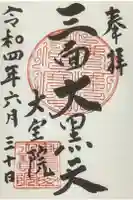 奉拝
三面大黒天
大黒院
令和四年六月三十日